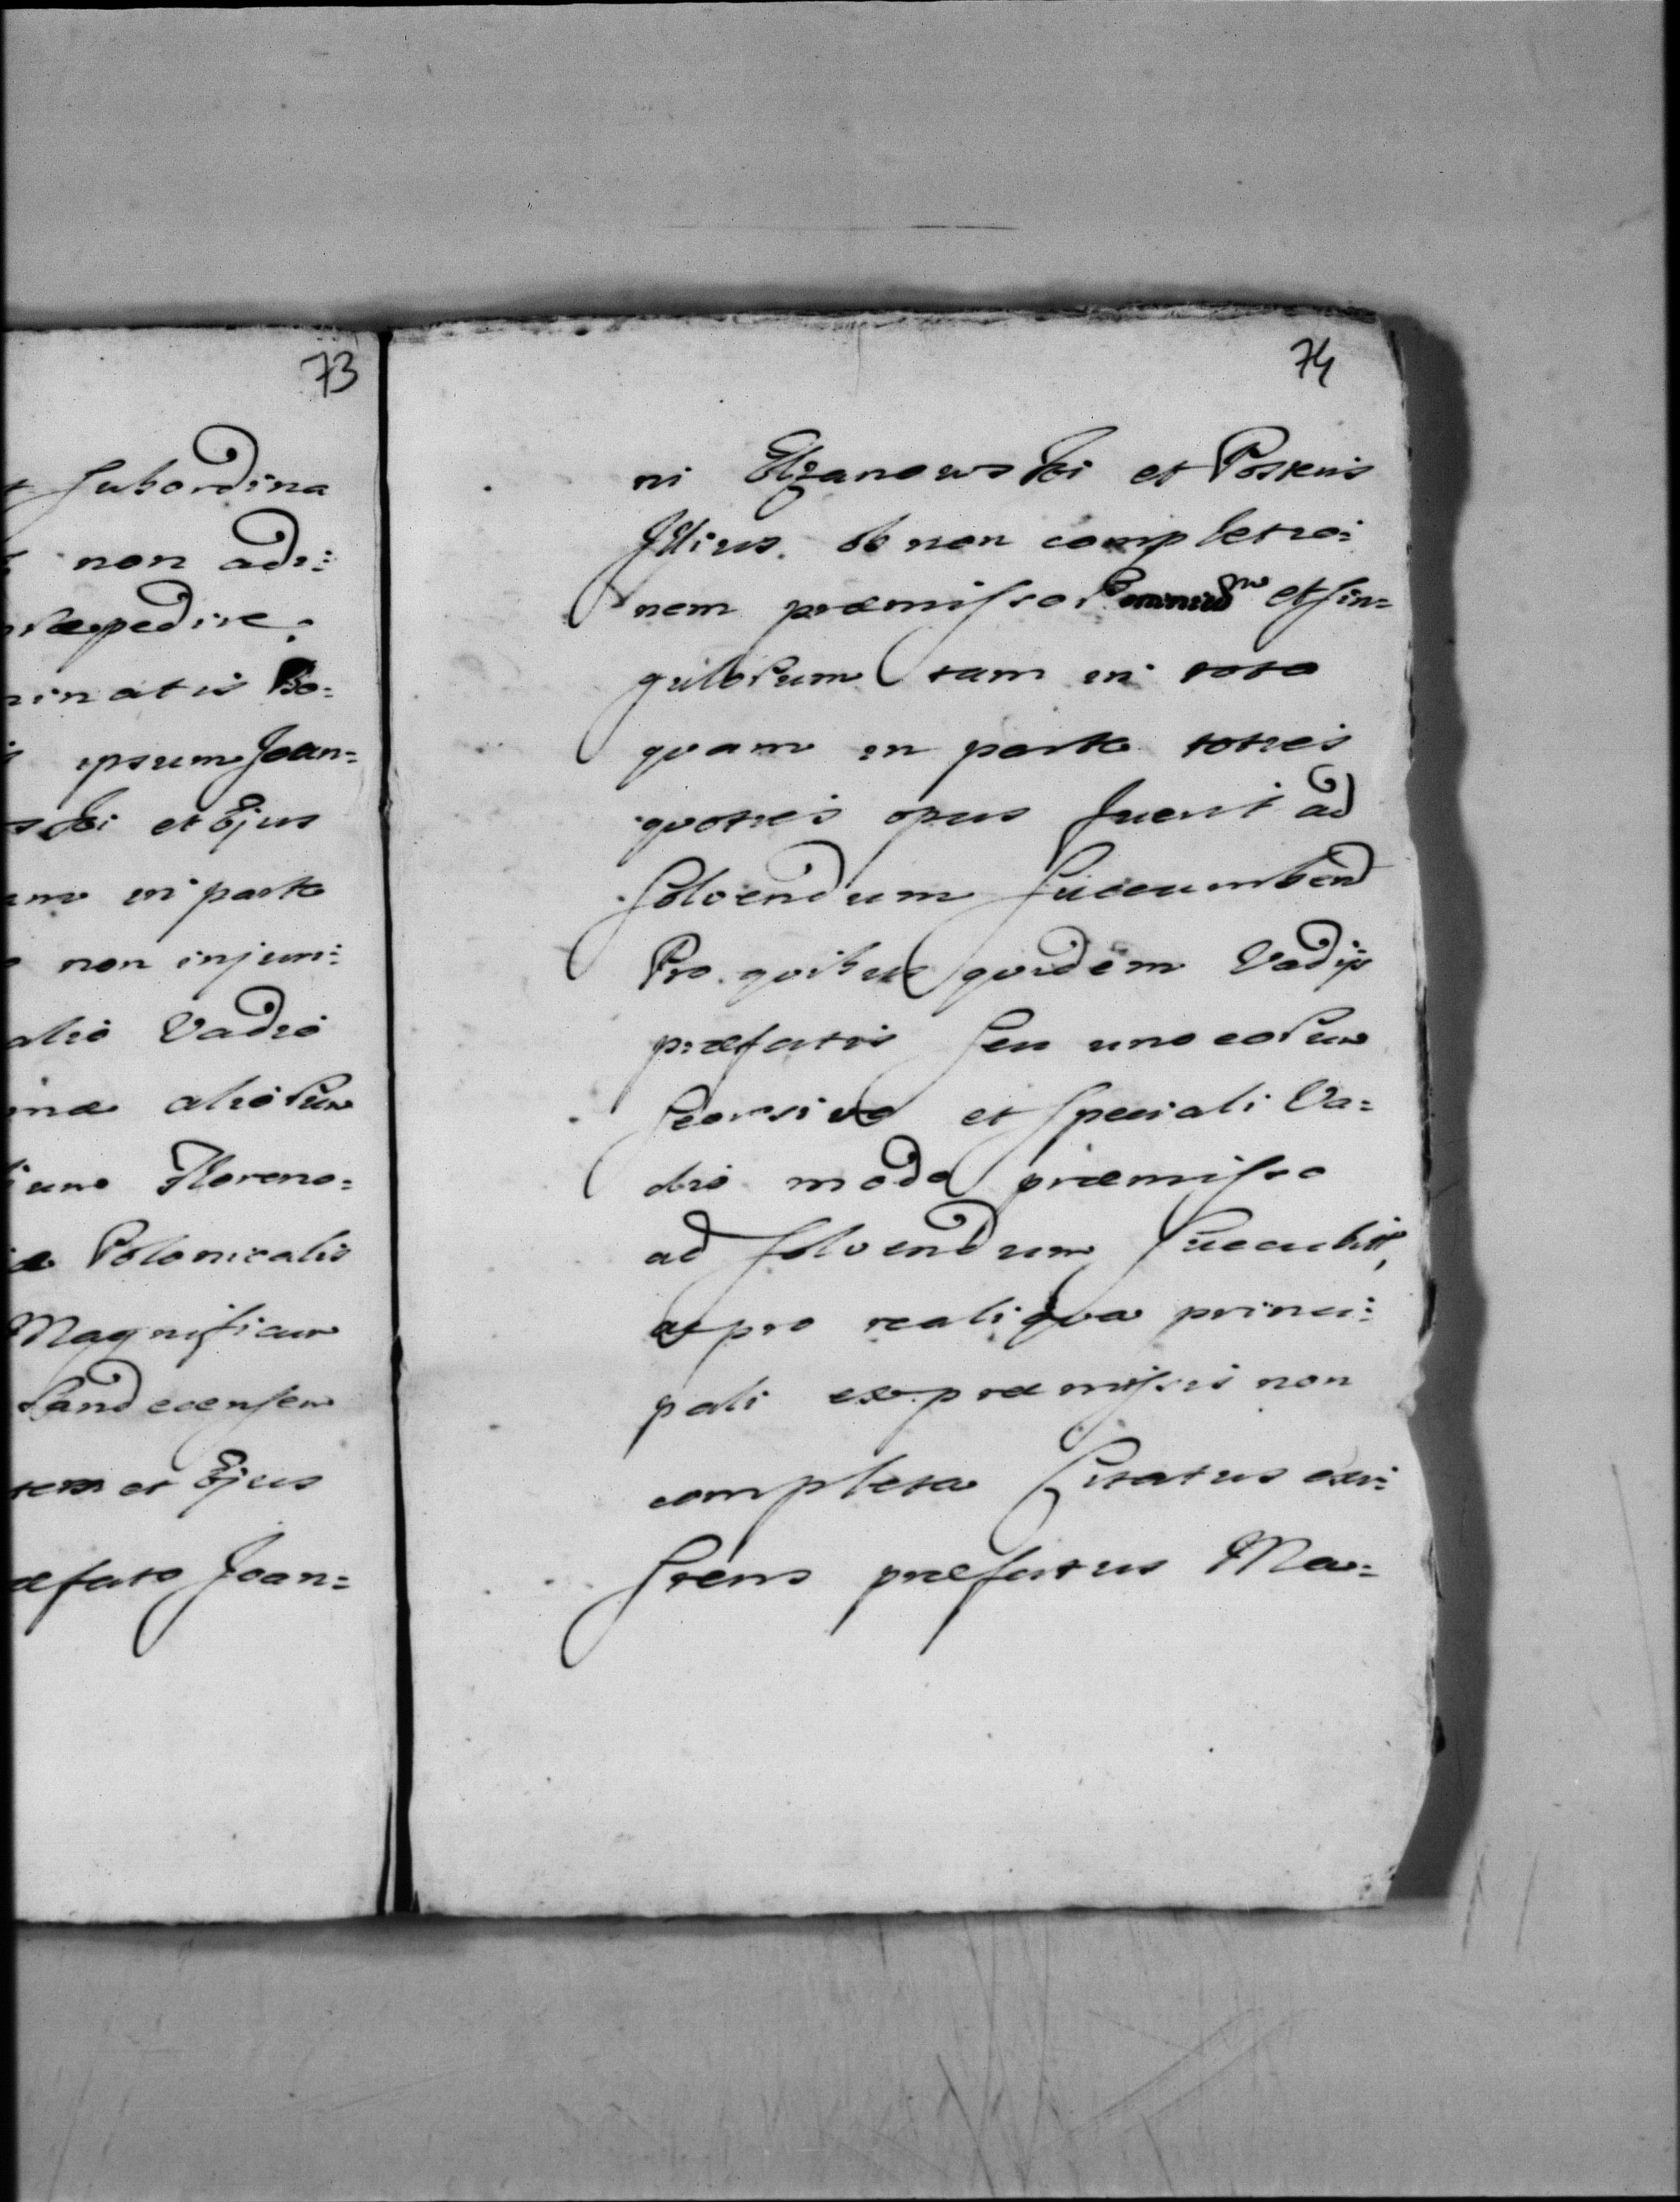 73
t subordina
non adi:
præpedire.
inatis Bo:
ipsum Joan:
ski et Ejus
in parte
non injuri:
alio Vadio
aliorum
Floreno:
Polonicalis
Magnificum
Sandecensem
et Ejus
æfato Joan=
74
ni Elzanowski et Posteris
Illius. ob non completio:
nem præmissor omnium et sin=
gulorum tam in toto
quam in parte toties
quoties opus fuerit ad
solvendum succumbend
Pro quibus quidem Vadijs
præfatis seu uno eorum
seorsivo et speciali Va=
dio modo præmisso
ad solvendum succubit,
ac pro realiqva princi:
pali ex præmissis non
completa Citatus exi:
stens præfatus Ma=